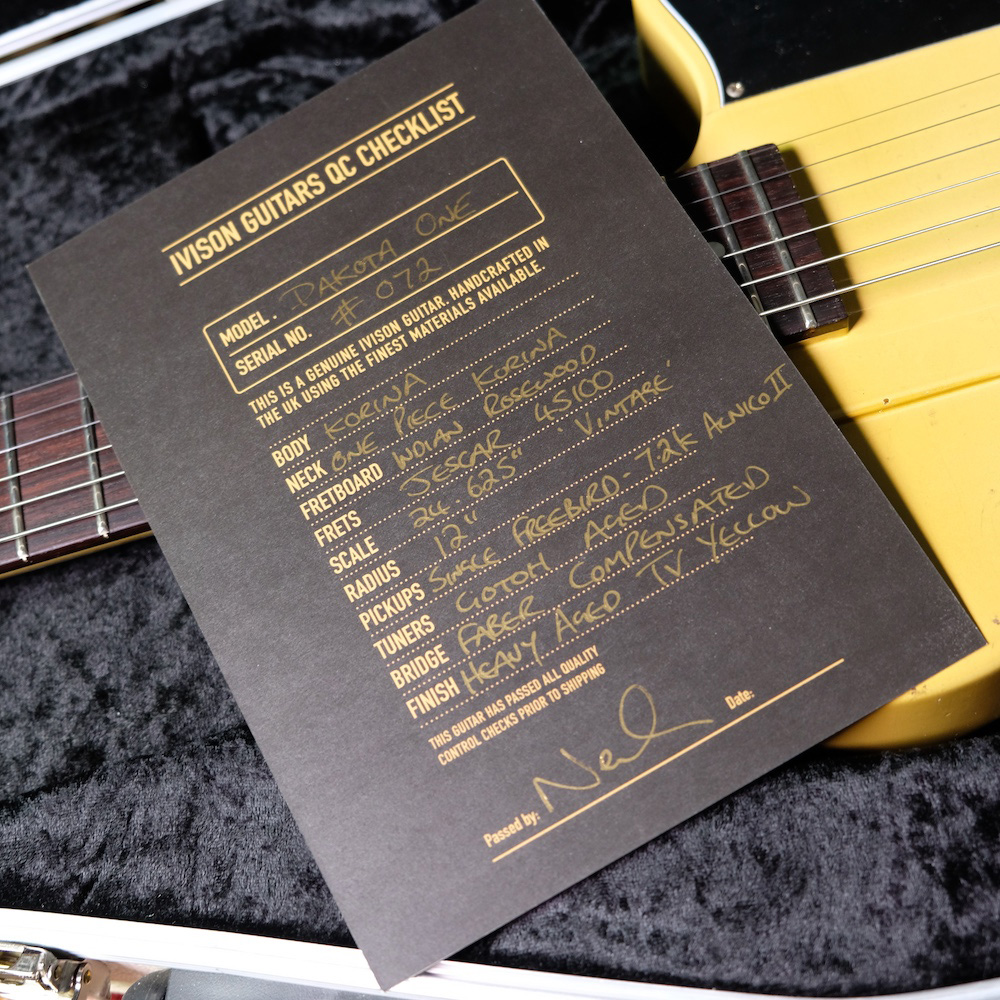 IVISON GUITARS QC CHECKLIST
MODEL. DAKOTA ONE
SERIAL NO. # 072
THIS IS A GENUINE IVISON GUITAR. HANDCRAFTED IN
THE UK USING THE FINEST MATERIALS AVAILABLE.
BODY KORINA
NECK ONE PIECE KORINA
FRETBOARD INDIAN ROSEWOOD
FRETS JESCAR 45100
SCALE 24.625" "VINTAGE"
RADIUS 12"
PICKUPS SINGLE FREEBIRD - 7.2K ALNICO II
TUNERS GOTOH AGED
BRIDGE FABER COMPENSATED
FINISH HEAVY AGED TV YELLOW
THIS GUITAR HAS PASSED ALL QUALITY
CONTROL CHECKS PRIOR TO SHIPPING
Passed by: Neil Date: